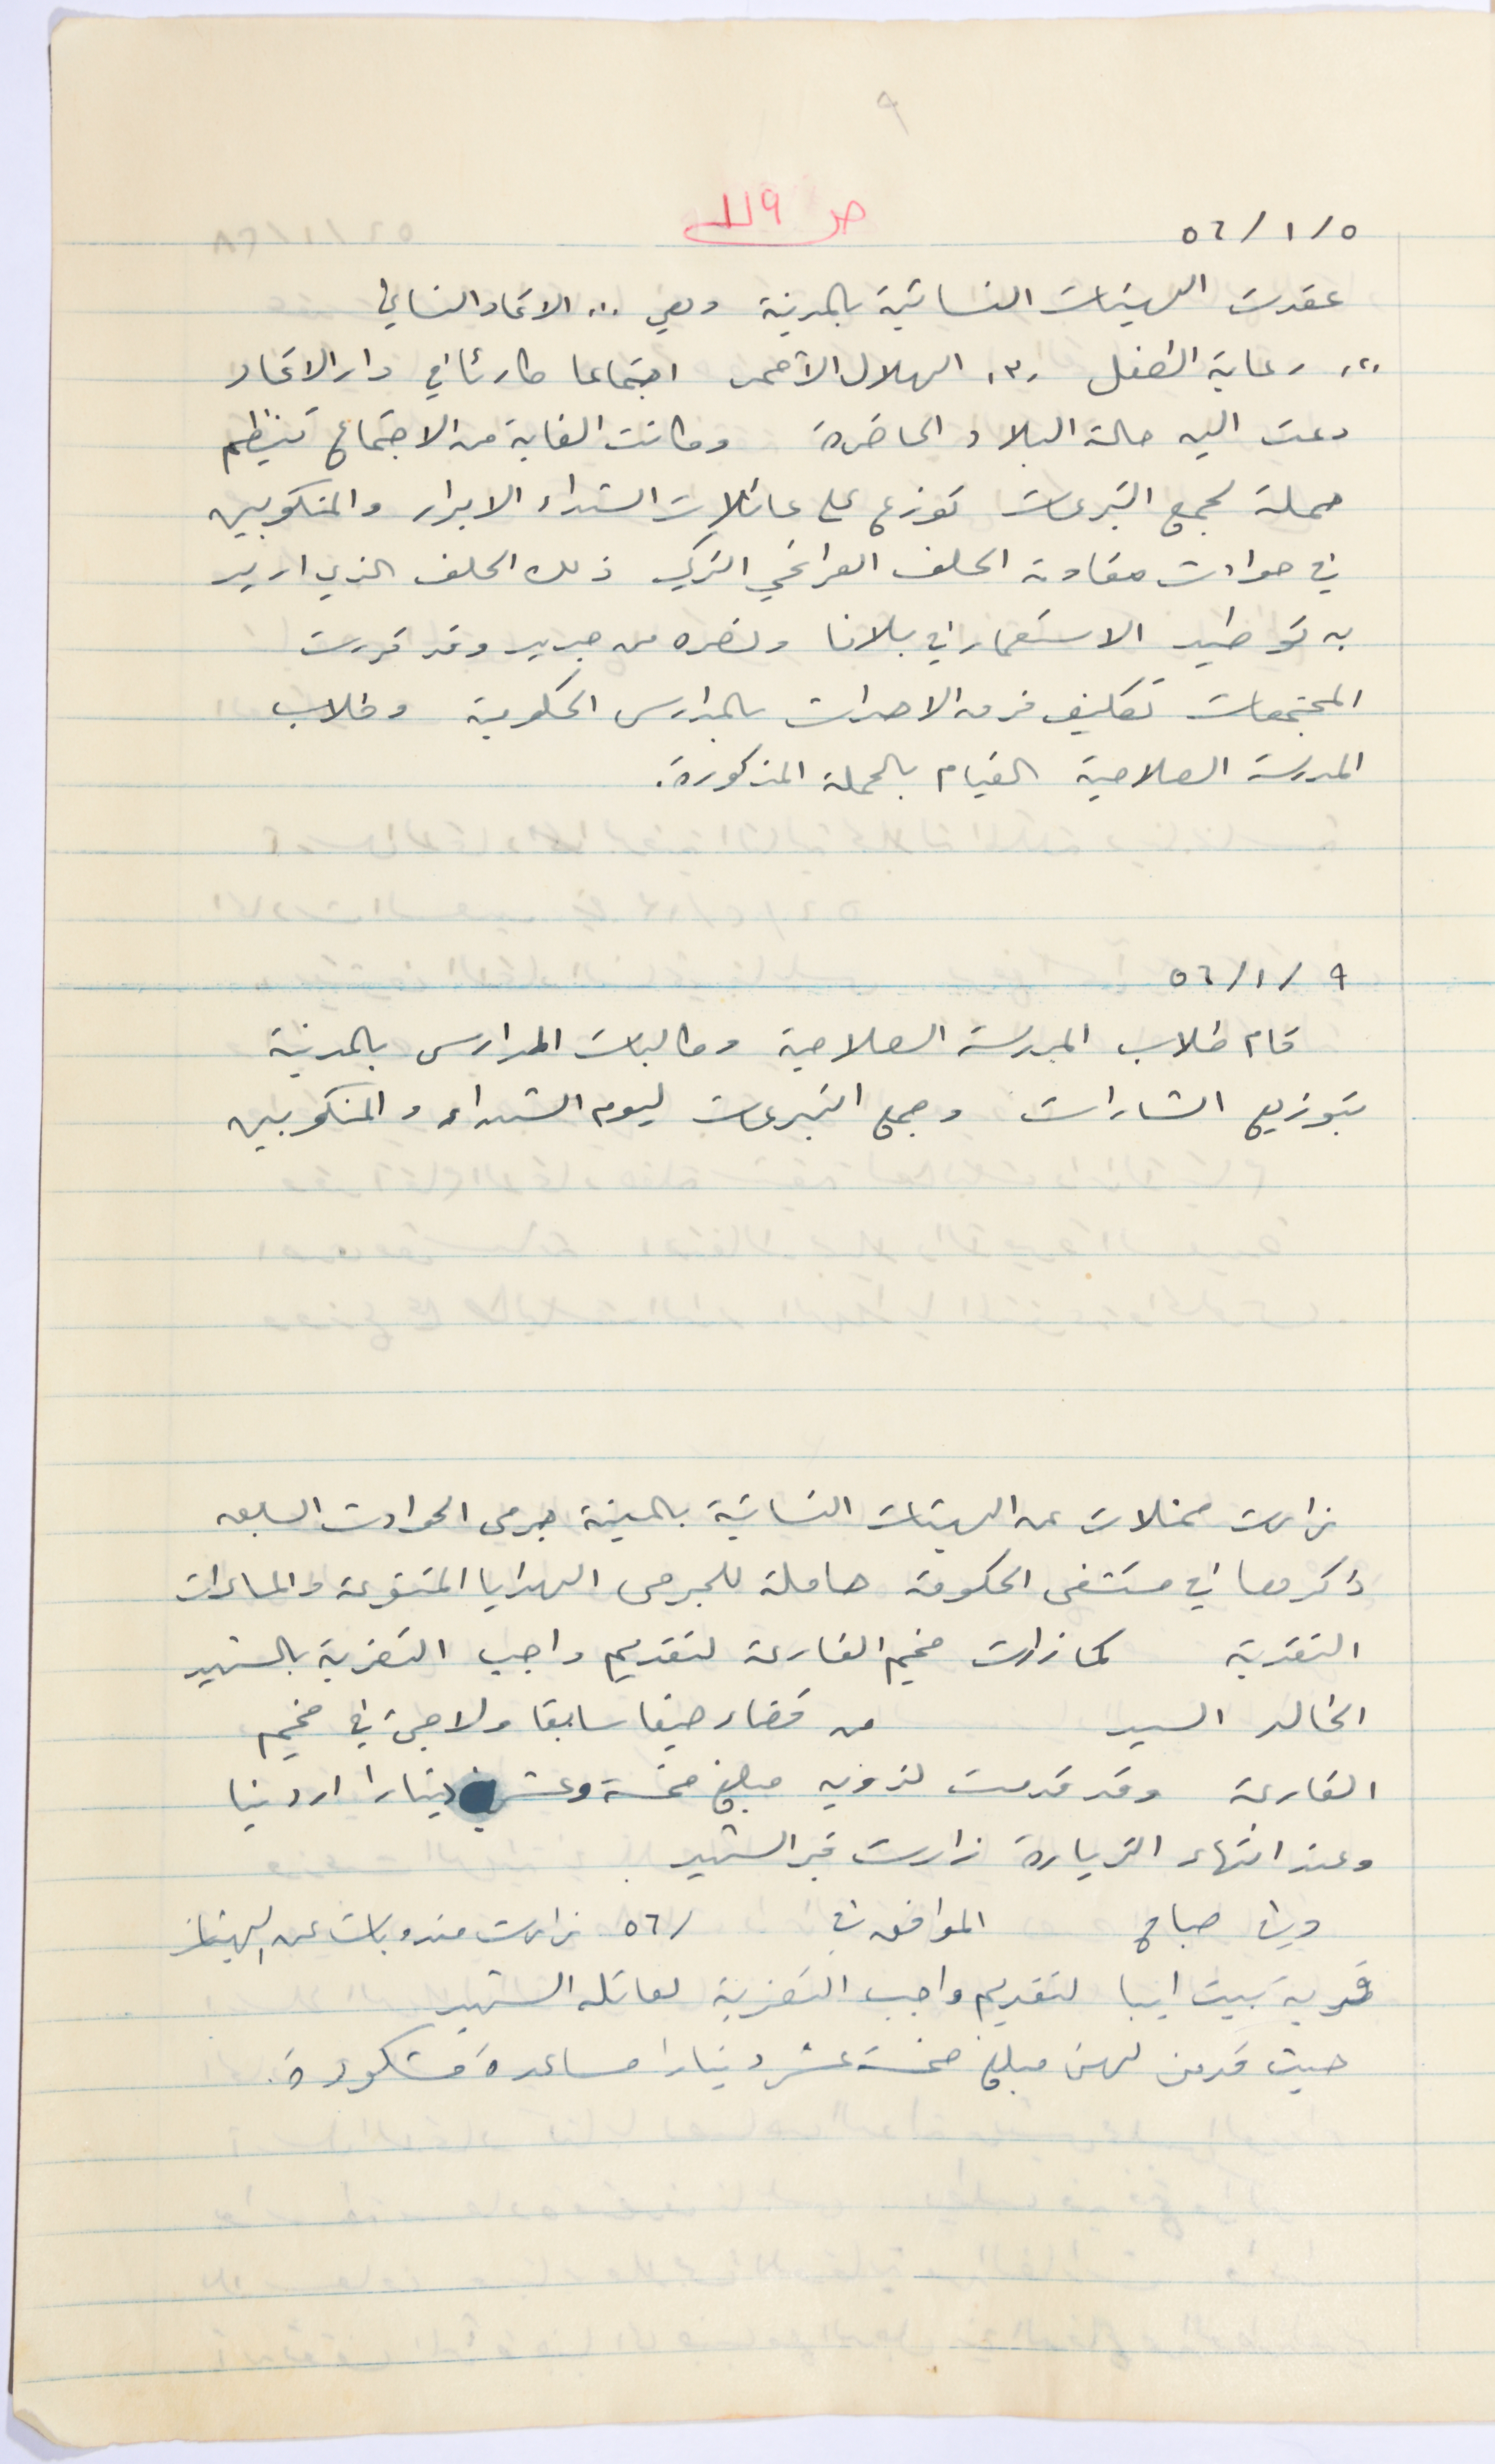 ٩
ص ١١٩
٥٦/١/٥
عقدت الهيئات النسائية بالمدينة وهي ١٠. الاتحاد النسائي
٢٠. رعاية الطفل ٣٠. الهلال الأحمر اجتماعا طارئا في دار الاتحاد
دعت اليه حالة البلاد الحاضرة وكانت الغاية من الاجتماع تنظيم
حملة لجمع التبرعات توزع على عائلات الشهداء الابرار والمنكوبين
في حوادث مقاومة الحلف العراقي التركي ذلك الحلف الذي اريد
به توطيد الاستعمار في بلادنا ونصره من جديد وقد قررت
المجتمعات تكليف فرق الاحداث بالمدارس الحكومية وطلاب
المدرسة الصلاحية القيام بالحملة المذكورة.
٥٦/١/٩
قام طلاب المدرسة الصلاحية وطالبات المدارس بالمدينة
بتوزيع الشارات وجمع التبرعات ليوم الشهداء والمنكوبين
زارت ممثلات عن الهيئات النسائية بالمدينة جرحى الحوادث السابق
ذكرها في مستشفى الحكومة حاملة للجرحى الهدايا المتنوعة والمساعدات
النقدية كما زارت مخيم الفارعة لتقديم واجب التعزية بالشهيد
الخالد السيد من قضاء حيفا سابقا ولاجئ في مخيم
الفارعة وقد قدمت لذويه مبلغ خمسة وعشرين دينارا اردنيا
وعند انتهاء الزيارة زارت قبر الشهيد
وفي صباح الموافق في /٥٦ زارت مندوبات عن الهيئات
قرية بيت ايبا لتقديم واجب التعزية لعائلة الشهيد
حيث قدمن لهن مبلغ خمسة عشر دينارا مساعدة مشكورة.